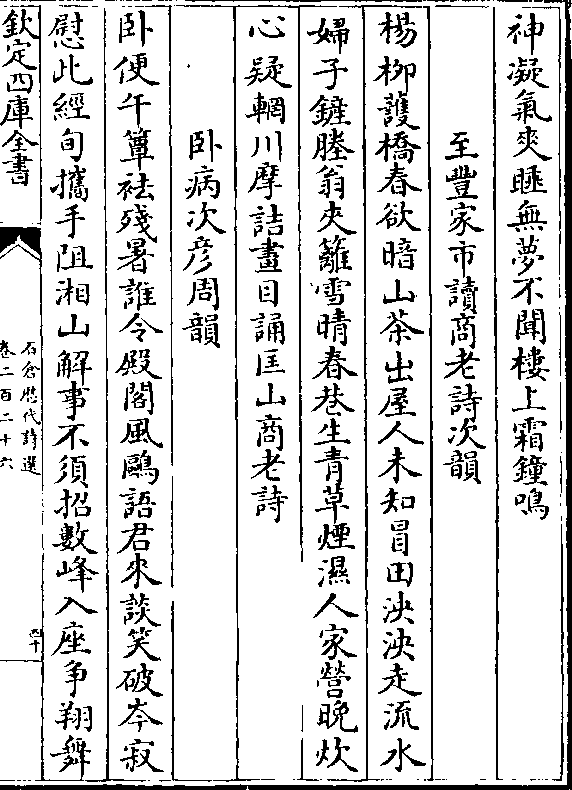 神凝氣爽睡無夢不聞樓上霜鐘鳴
至豐家市讀商老詩次韻
楊柳䕶橋春欲暗山茶出屋人未知冒田泱泱走流水
婦子鏟塍翁夾籬雪晴春巷生青草煙濕人家營晚炊
心疑輞川摩詰畫目誦匡山商老詩
卧病次彦周韻
卧便午簟袪殘暑誰令殿閣風鷗語君來談笑破岑寂
慰此經旬攜手阻湘山解事不須招數峰入座争翔舞
欽定四庫全書
石倉厯代詩選
卷二百二十六
四十